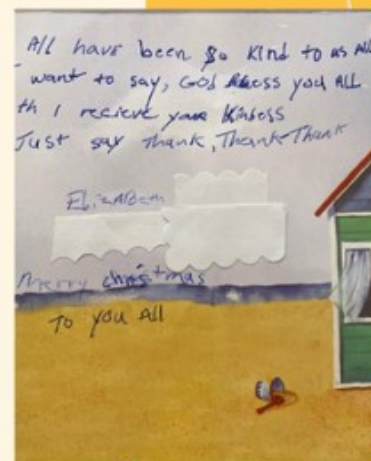 All have been so kind to us All
want to say, God Bless you All
th I recieve your kindess
Just say thank, Thank Thank
Elizabeth
Merry christmas
To you All